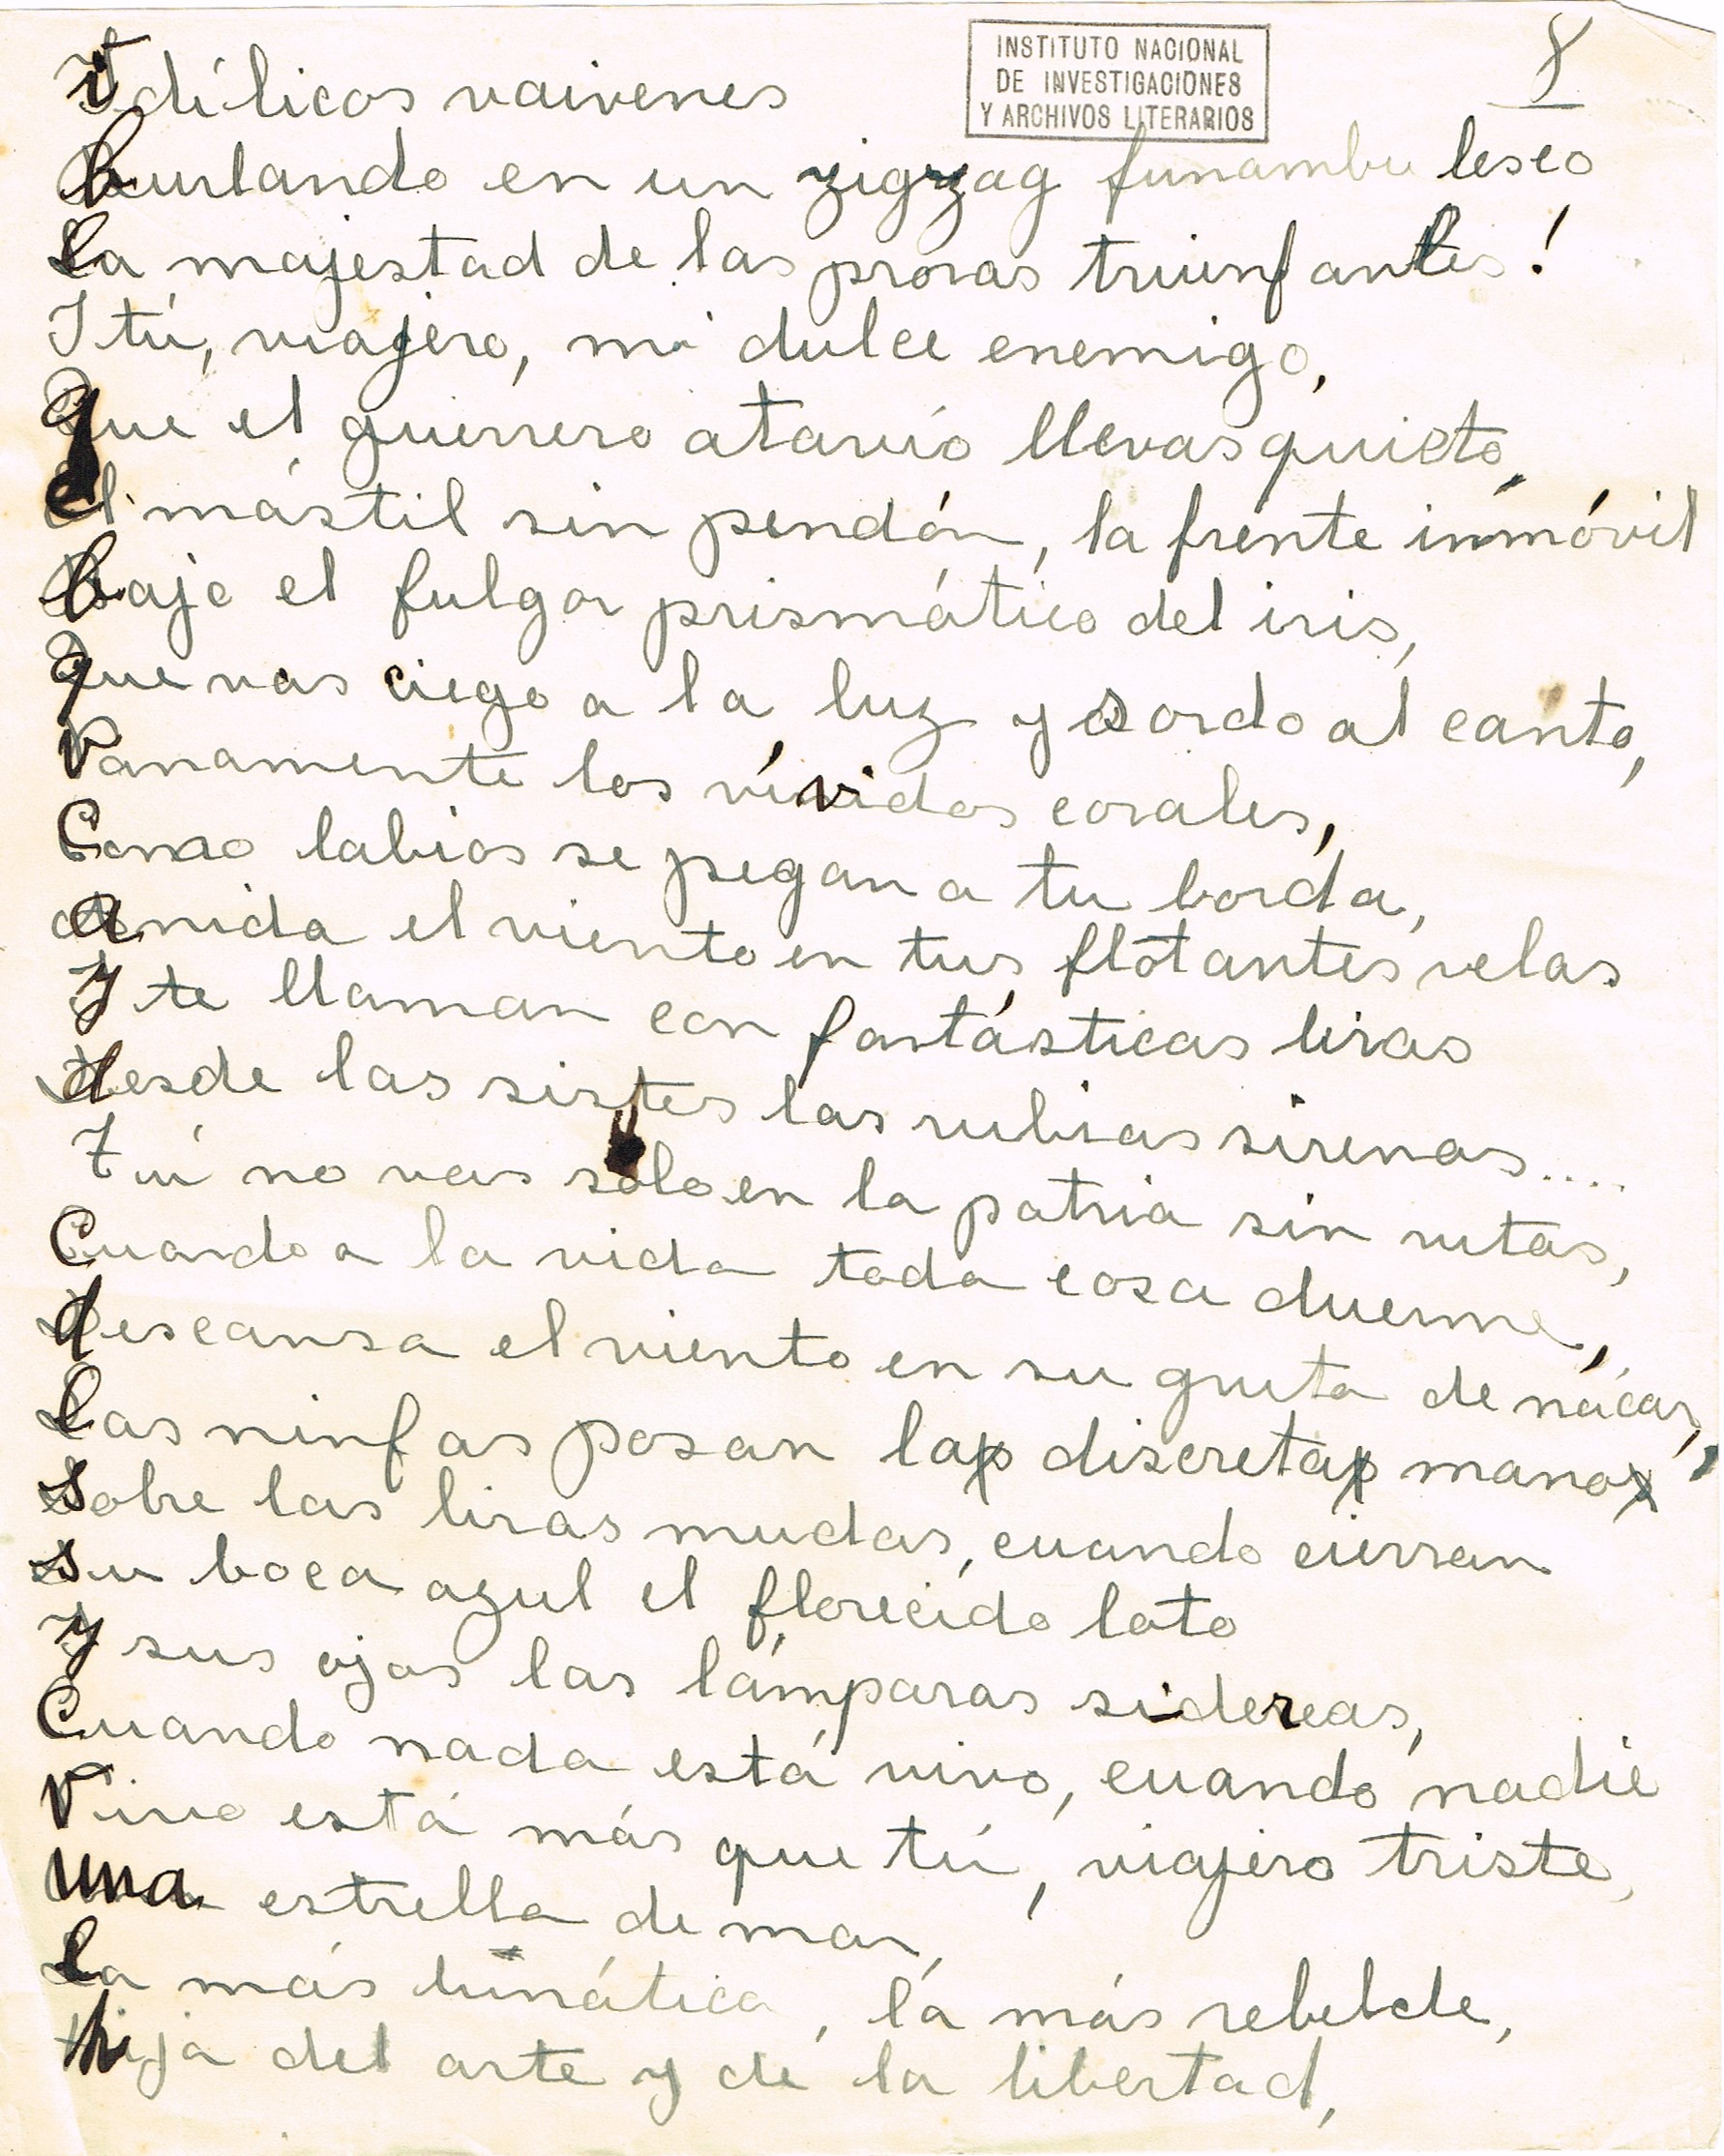 INSTITUTO NACIONAL
DE INVESTIGACIONES
Y ARCHIVOS LITERARIOS
8
idílicos vaivenes
burlando en un zigzag funambulesco
la majestad de las proras triunfantes!
I tú, viajero, mi dulce enemigo,
que el guerrero atavío llevas quieto,
el mástil sin pendón, la frente inmóvil
bajo el fulgor prismático del iris,
que vas ciego a la luz y sordo al canto,
vanamente los vívidos corales,
como labios se pegan a tu borda,
anida el viento en tus flotantes velas
y te llaman con fantásticas liras
desde las sirtes las rubias sirenas....
Tú no vas sólo en la patria sin rutas,
Cuando a la vida toda cosa duerme,
descansa el viento en su gruta de nácar,
las ninfas posan las discretas manos
sobre las liras mudas, cuando cierran
su boca azul el florecido loto
y sus ojos las lámparas sidereas,
Cuando nada está vivo, cuando nadie
vivo está más que tú, viajero triste,
una estrella de mar,
la más lunática, la más rebelde,
hija del arte y de la libertad,